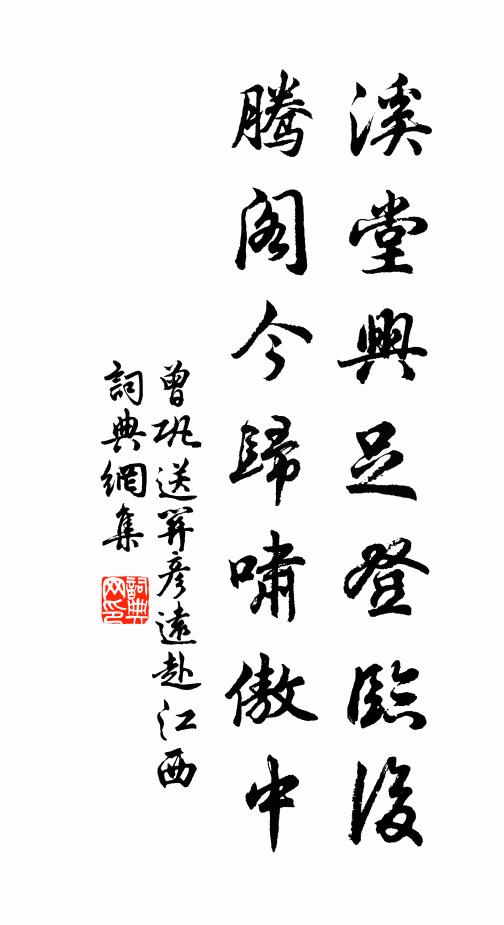 溪堂興足登臨後
騰阁今歸嘯傲中
曾巩送羿彦遠赴江西
詞典網集
詞典网印